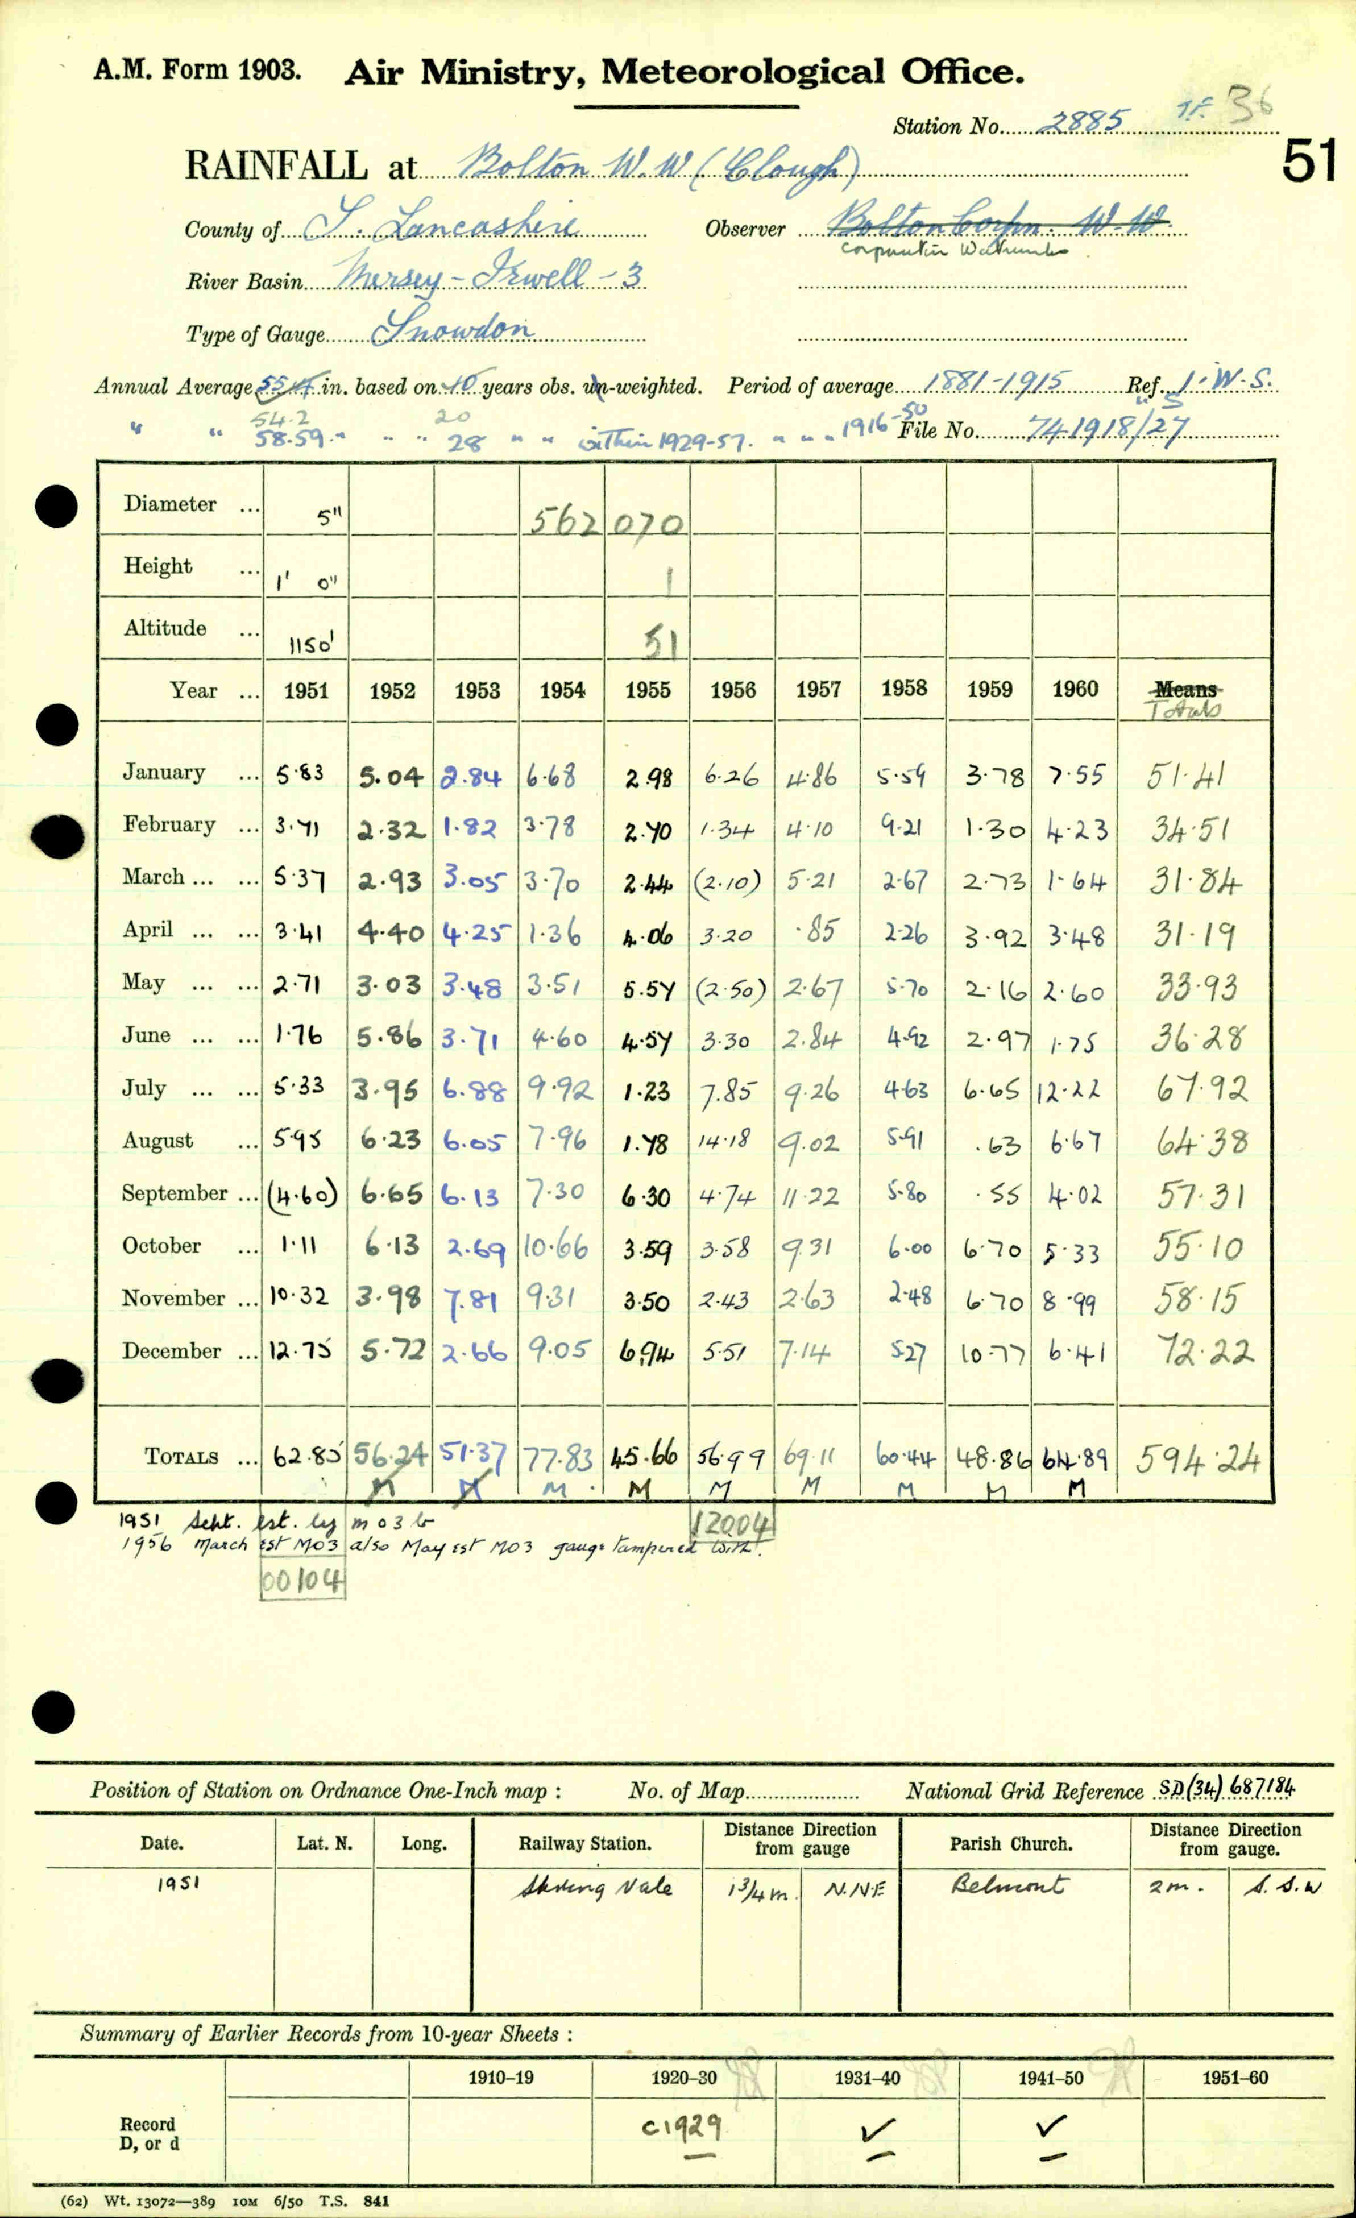 A.M. Form 1903. Air Ministry, Meteorological Office.
Station No. 2885 36
51
RAINFALL at Bolton W.W (Clough)
County of S. Lancashire Observer Bolton Corpn. W.W.
River Basin Mersey - Irwell - 3
Type of Gauge Snowdon
Annual Average 55.4 in. based on 10 years obs. un-weighted. Period of average 1881-1915 Ref. I.W.S.
" " 54.2 20
58.59 " " " 28 " " within 1929-57. " " " 1916-50 File No. 741918/27
Diameter ... 5" 562 070
Height ... 1' 0" 1
Altitude ... 1150' 51
Year ... 1951 1952 1953 1954 1955 1956 1957 1958 1959 1960 Means
Totals
January ... 5.83 5.04 2.84 6.68 2.98 6.26 4.86 5.59 3.78 7.55 51.41
February ... 3.71 2.32 1.82 3.78 2.70 1.34 4.10 9.21 1.30 4.23 34.51
March ... ... 5.37 2.93 3.05 3.70 2.44 (2.10) 5.21 2.67 2.73 1.64 31.84
April ... ... 3.41 4.40 4.25 1.36 4.06 3.20 .85 2.26 3.92 3.48 31.19
May ... ... 2.71 3.03 3.48 3.51 5.57 (2.50) 2.67 5.70 2.16 2.60 33.93
June ... ... 1.76 5.86 3.71 4.60 4.57 3.30 2.84 4.92 2.97 1.75 36.28
July ... ... 5.33 3.95 6.88 9.92 1.23 7.85 9.26 4.63 6.65 12.22 67.92
August ... 5.95 6.23 6.05 7.96 1.78 14.18 9.02 5.91 .63 6.67 64.38
September ... (4.60) 6.65 6.13 7.30 6.30 4.74 11.22 5.80 .55 4.02 57.31
October ... 1.11 6.13 2.69 10.66 3.59 3.58 9.31 6.00 6.70 5.33 55.10
November ... 10.32 3.98 7.81 9.31 3.50 2.43 2.63 2.48 6.70 8.99 58.15
December ... 12.75 5.72 2.66 9.05 6.94 5.51 7.14 5.27 10.77 6.41 72.22
TOTALS ... 62.85 56.24 51.37 77.83 45.66 56.99 69.11 60.44 48.86 64.89 594.24
M M M M M M M M M
1951 Sept. est. by m o 3 b 12004
1956 March est MO3 also May est MO3 gauge tampered with.
00104
Position of Station on Ordnance One-Inch map : No. of Map National Grid Reference SD(34) 687184
Date. Lat. N. Long. Railway Station. Distance from gauge Direction Parish Church. Distance from gauge. Direction
1951 Vale 1 3/4 m. N.N.E Belmont 2 m. S.S.W
Summary of Earlier Records from 10-year Sheets :
1910–19 1920–30 1931–40 1941–50 1951–60
Record
D, or d c1929 ✓ ✓
(62) Wt. 13072—389 10M 6/50 T.S. 841